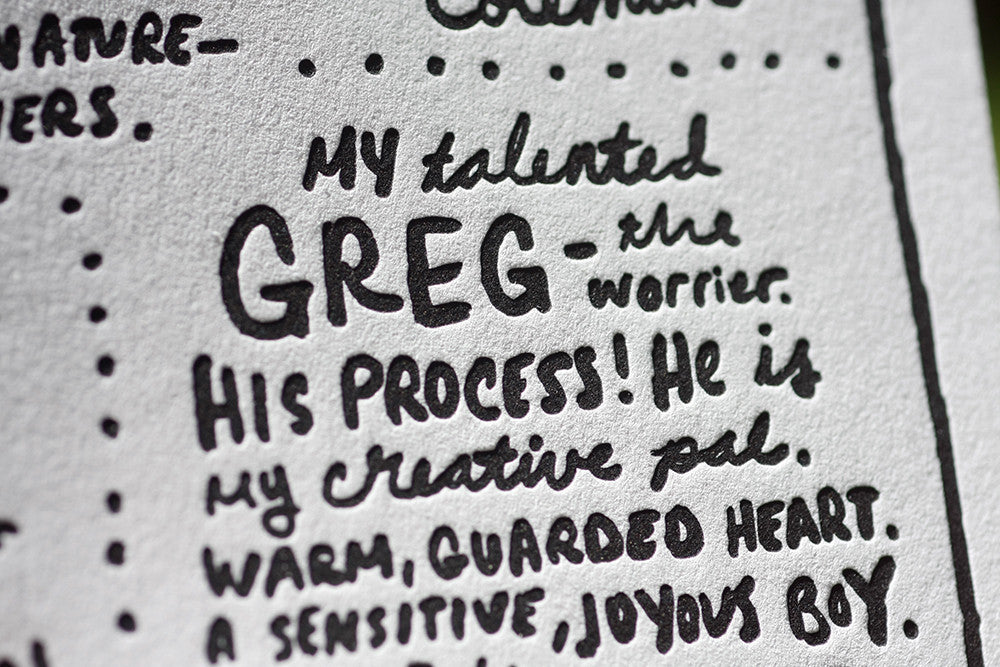 NATURE—
HERS.
Coleman
MY talented
GREG – the
worrier.
HIS PROCESS! He is
my creative pal.
WARM, GUARDED HEART.
A SENSITIVE, JOYOUS BOY.